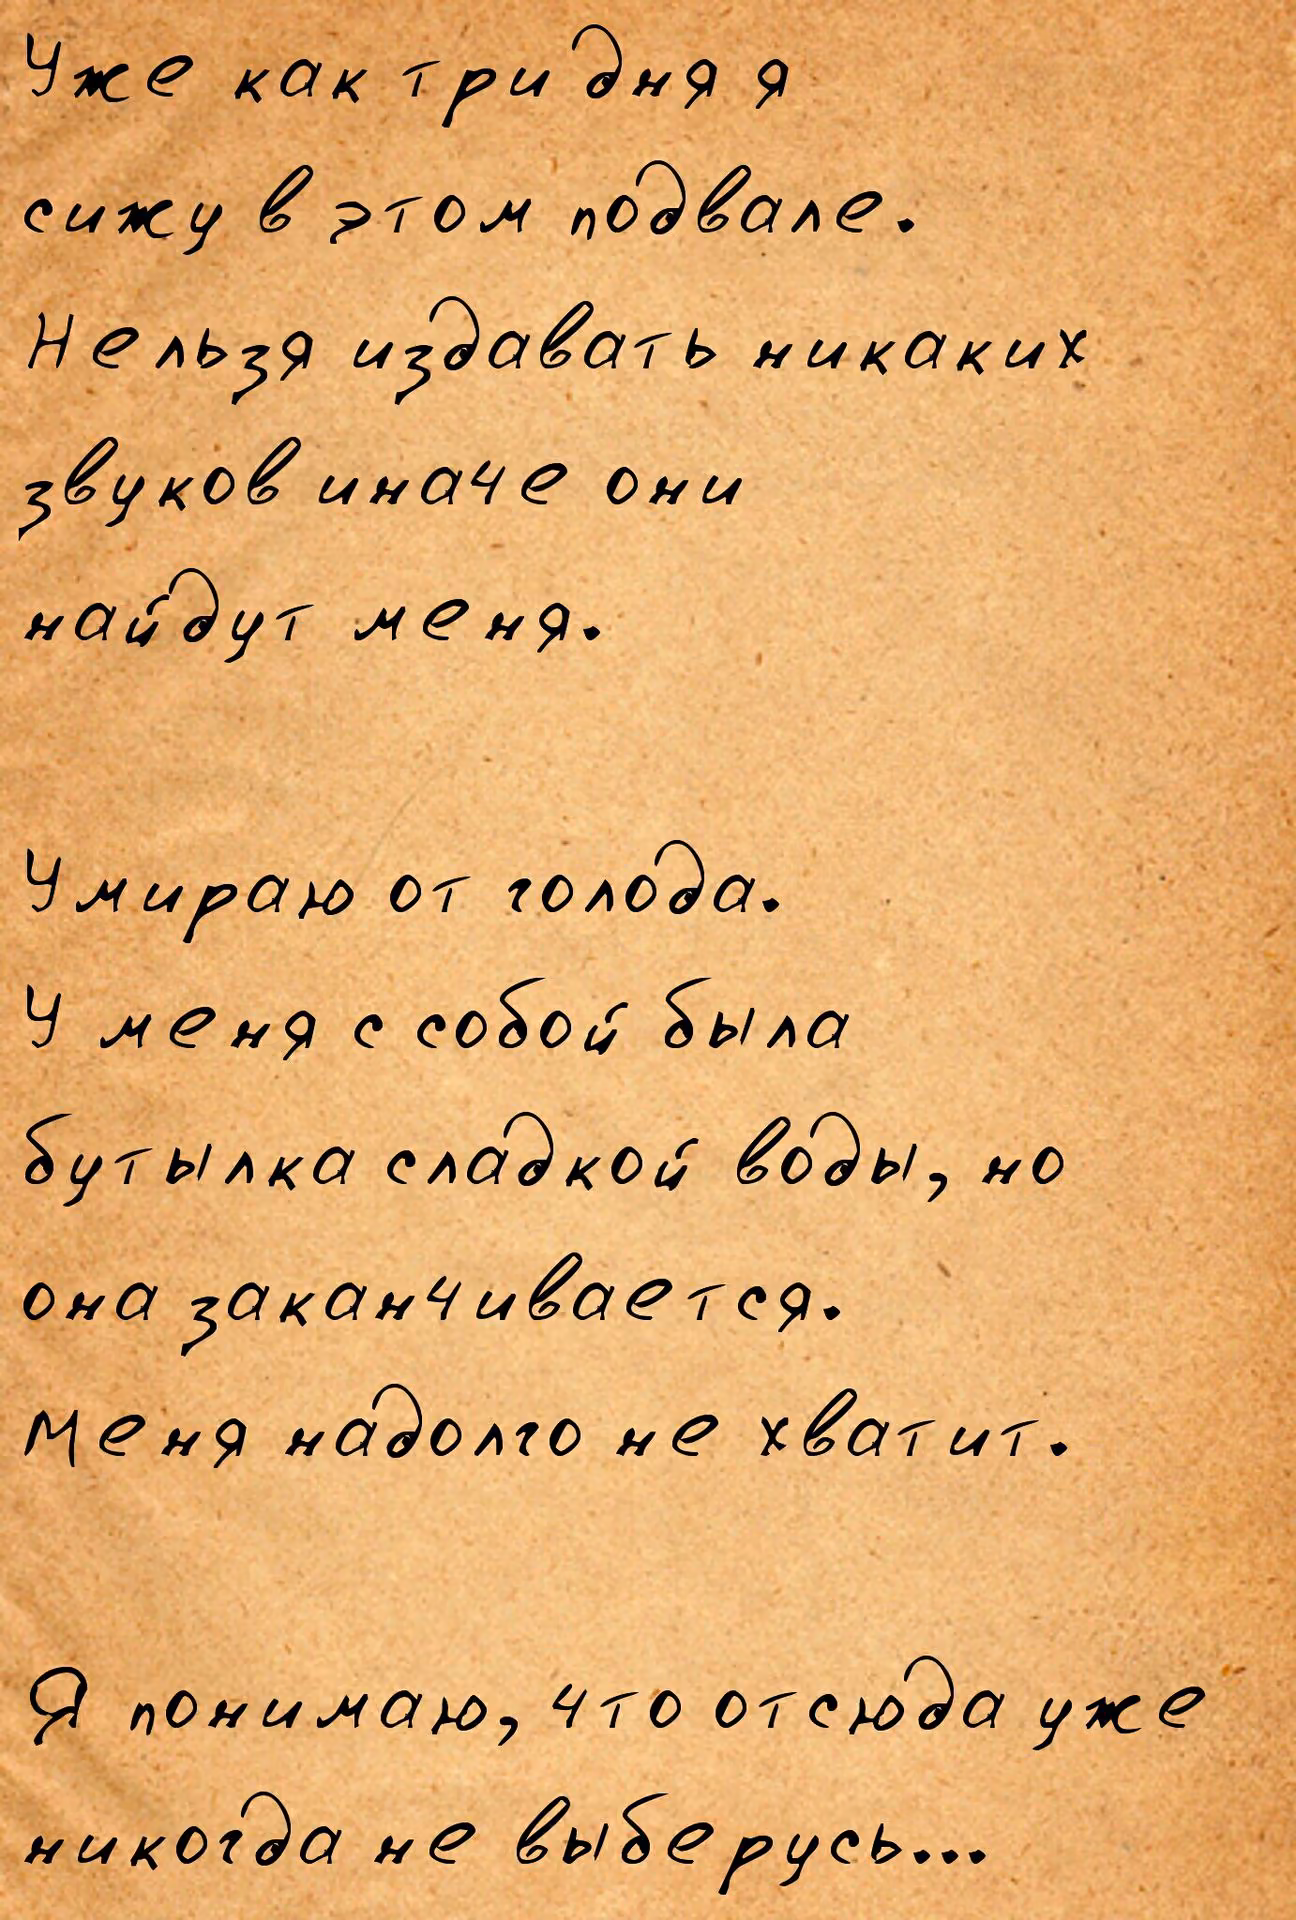 Уже как три дня я
сижу в этом подвале.
Нельзя издавать никаких
звуков иначе они
найдут меня.
Умираю от голода.
У меня с собой была
бутылка сладкой воды, но
она заканчивается.
Меня надолго не хватит.
Я понимаю, что отсюда уже
никогда не выберусь...